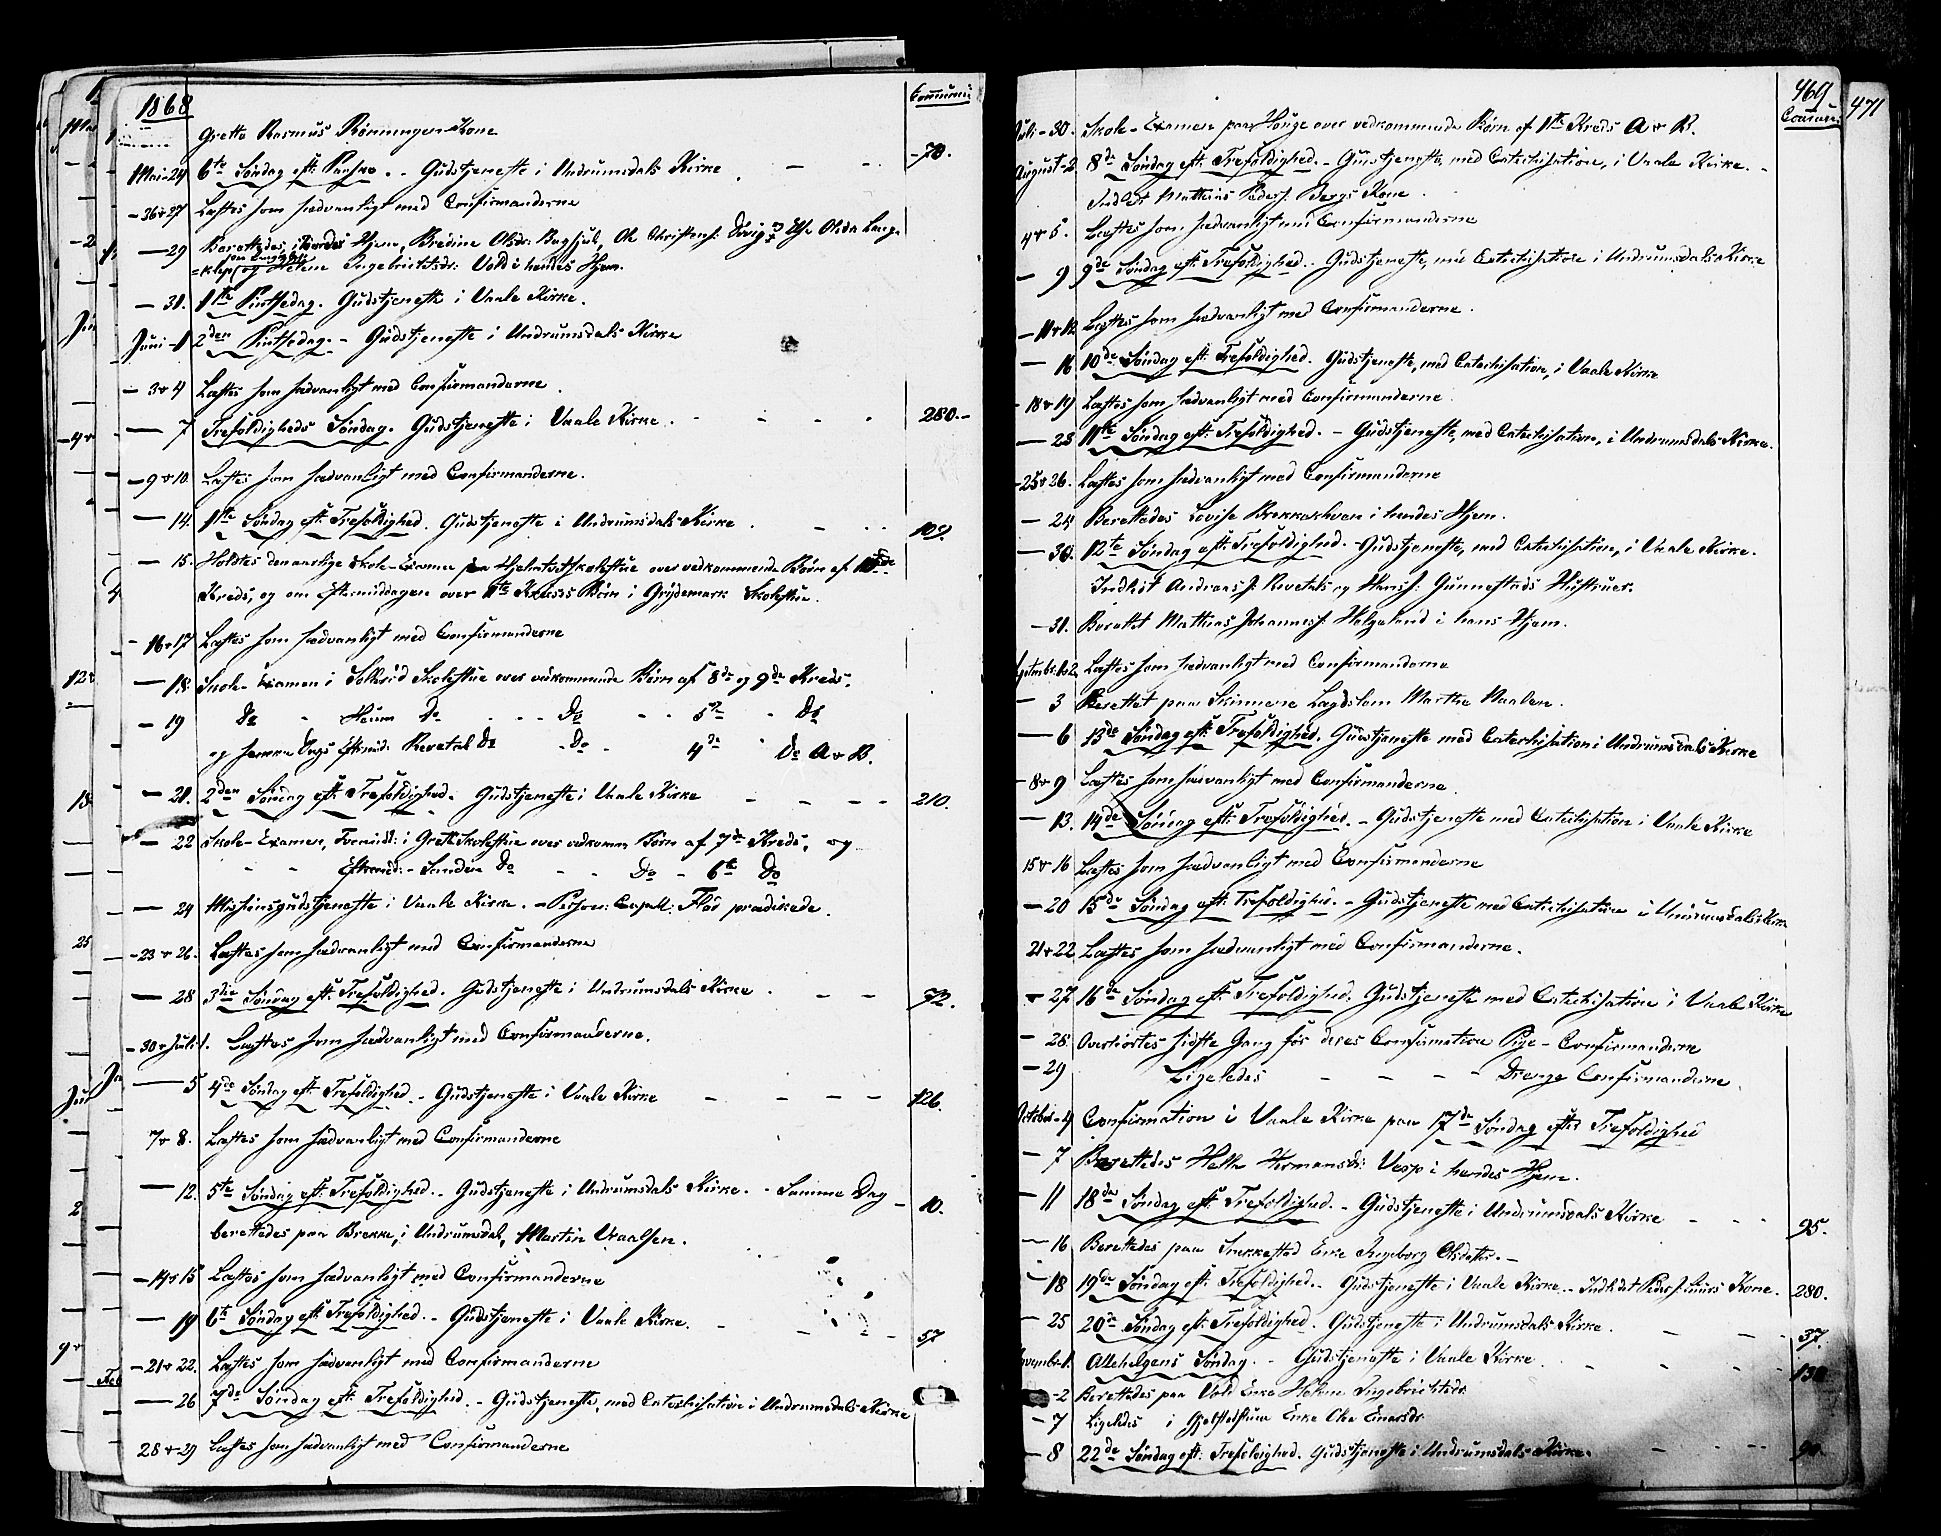 1868
Communi
Grette Rasmus Rönningens Kone
Mai-24 6te Söndag eft. Paaske. - Gudstjeneste i Undrumsdals Kirke - 78.
- 26 & 27 Læstes som sædvanligt med Confirmanderne
- 29 Berettedes, i hendes Hjem, Bredine Olsdr:
og Helene Ingebrictsdr: Vold i hendes Hjem.
- 31. 1ste Pintsedag. Gudstjeneste i Vaale Kirke.
Juni-1 2den Pintsedag. - Gudstjeneste i Undrumsdals Kirke
- 3 & 4 Læstes som sædvanligt med Confirmanderne
- 7 Trefoldigheds Söndag. Gudstjeneste i Vaale Kirke. - - - 280.-
- 9 & 10. Læstes som sædvanligt med Confirmanderne.
- 14. 1ste Söndag eft: Trefoldighed. Gudstjeneste i Undrumsdals Kirke. - - 109.
- 15. Holdtes den aarlige Skole-Examen paa Skolestue over vedkommende Börn af
Kreds, og om Eftermiddagen over 1ste Kredses Börn i Grydemark Skolestue.
- 16 & 17 Læstes som sædvanligt med Confirmanderne
- 18. Skole-Examen i Solleröd Skolestue over vedkommende Börn af 8de og 9de Kreds.
- 19 Do - Heum Do - - - Do - - 5te - Do
og samme Dags Eftmid: Revetal Do - Do - 4de Do A & B.
- 21. 2den Söndag eft: Trefoldighed. Gudstjeneste i Vaale Kirke - - - - 210.
- 22 Skole-Examen, Formidd: i Grette Skolestue over vedkomm. Börn af 7de Kreds, og
- - Eftermid: - Sanden Do - - Do - 6te Do
- 24 Missionsgudstjeneste i Vaale Kirke. - Person: Capell: Flod prædikede.
- 23 & 26. Læstes som sædvanligt med Confirmanderne
- 28 3die Söndag eft: Trefoldighed. Gudstjeneste i Undrumsdals Kirke. - - 72.
- 30 & Juli 1. Læstes som sædvanligt med Confirmanderne.
- 5 4de Söndag eft. Trefoldighed. - Gudstjeneste i Vaale Kirke - - - - 126.
7 & 8. Læstes som sædvanligt med Confirmanderne
- 12. 5te Söndag eft: Trefoldighed. - Gudstjeneste i Undrumsdals Kirke. - Samme Dag - 10.
berettedes paa Brekke, i Undrumsdal, Martin Vraalsen.
- 14 & 15 Læstes som sædvanligt med Confirmanderne
- 19 6te Söndag eft Trefoldighed. - Gudstjeneste i Vaale Kirke. - - - - 57
- 21 & 22. Læstes som sædvanligt med Confirmanderne
- 26 7de Söndag eft. Trefoldighed. - Gudstjeneste, med Catechisation i Undrumsdals Kirke
28 & 29 Læstes som sædvanligt med Confirmanderne
469
471
Commun
Juli-30. Skole-Examen paa Houge over vedkommende Börn af 1ste Kreds A & B.
August-2 8de Söndag eft. Trefoldighed. - Gudstjeneste, med Catechisation, i Vaale Kirke. -
Indledt Mathias Peders: Bergs Kone.
4 & 5. Læstes som sædvanligt med Confirmanderne
- 9 9de Söndag eft. Trefoldighed. - Gudstjeneste, med Catechisation i Undrumsdals Kirke
- 11 & 12 Læstes som sædvanligt med Confirmanderne.
- 16 10de Söndag eft. Trefoldighed. Gudstjeneste, med Catechisation, i Vaale Kirke
- 18 & 19 Læstes som sædvanligt med Confirmanderne
- 23 11te Söndag eft. Trefoldighed. - Gudstjeneste, med Catechisation, i Undrumsdals Kirke.
- 25 & 26. Læstes som sædvanligt med Confirmanderne
- 24 Berettedes Lovise i hendes Hjem.
- 30. 12te Söndag eft. Trefoldighed. - Gudstjeneste, med Catechisation, i Vaale Kirke.
Indledt Andreas J. Revetals og Hans J. Gunnestads Hustruer.
- 31. Berettet Mathias Johannes: Helgeland i hans Hjem.
Septembr: 1 & 2 Læstes som sædvanligt med Confirmanderne
- 3 Berettet paa Skinnene Lægdslem Marthe Vaalen.
- 6 13de Söndag eft. Trefoldighed. Gudstjeneste med Catechisation i Undrumsdals Kirke
- 8 & 9 Læstes som sædvanligt med Confirmanderne.
- 13. 14de Söndag eft. Trefoldighed. - Gudstjeneste med Catechisation i Vaale Kirke
15 & 16 Læstes som sædvanligt med Confirmanderne
- 20 15de Söndag eft. Trefoldighed. - Gudstjeneste med Catechisation i Undrumsdals Kirke
21 & 22 Læstes som sædvanligt med Confirmanderne.
- 27 16de Söndag eft. Trefoldighed. Gudstjeneste med Catechisation i Vaale Kirke
- 28. Overhörtes sidste Gang för deres Confirmation Pige-Confirmanderne
- 29 Ligeledes - - - - Drenge Confirmanderne.
October-4 Confirmation i Vaale Kirke paa 17de Söndag efter Trefoldighed
- 7 Berettedes Helle Hermansdr: Vasp i hendes Hjem.
- 11 18de Söndag eft. Trefoldighed. - Gudstjeneste i Undrumsdals Kirke - - - 95.
- 16 Berettedes paa Snekkestad Enke Ingeborg Olsdatter. -
- 18 19de Söndag eft. Trefoldighed. - Gudstjeneste i Vaale Kirke. - Indledt Peder J. Kone. 280.
- 25 20de Söndag eft. Trefoldighed. Gudstjeneste i Undrumsdals Kirke. - - - 37.
Novembr-1. Allehelgens Söndag. - Gudstjeneste i Vaale Kirke. - - - 130
- 2 Berettedes paa Vold Enke Helene Ingebrictsdr
- 7 Ligeledes i Enke Einarsdr
- 8 22de Söndag eft. Trefoldighed. Gudstjeneste i Undrumsdals Kirke. - - - 90.